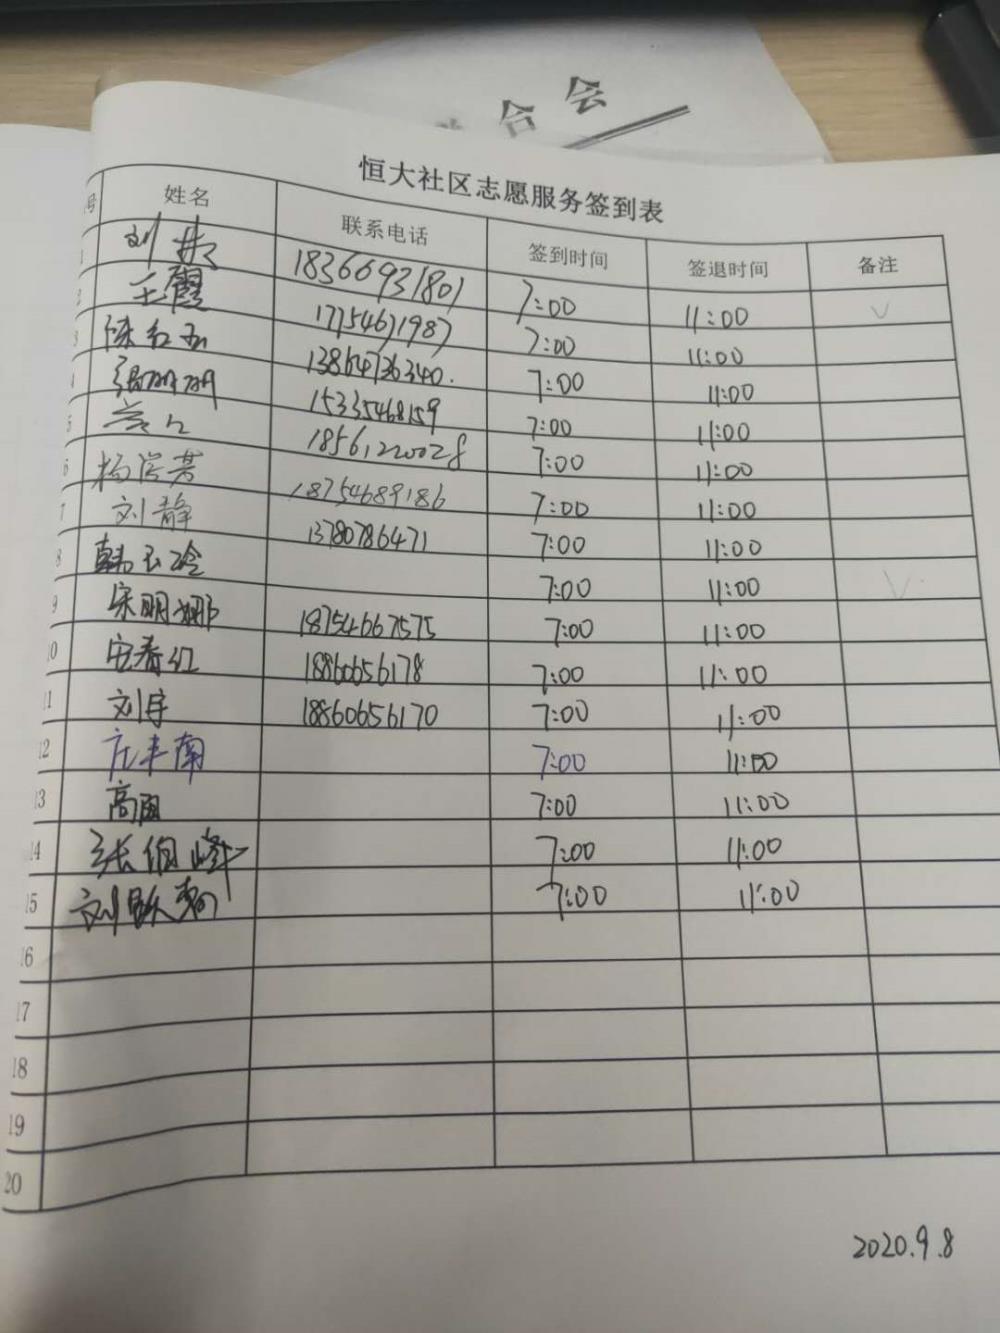 合会
恒大社区志愿服务签到表
号 姓名 联系电话 签到时间 签退时间 备注
1 刘 18366931801 7:00 11:00 √
2 王霞 17754671987 7:00 11:00
3 陈红玉 13864736340. 7:00 11:00
4 张丽丽 15335468159 7:00 11:00
5 18561220028 7:00 11:00
6 杨 芳 18754689186 7:00 11:00
7 刘静 13780786471 7:00 11:00
8 韩玉玲 7:00 11:00 √
9 宋明娜 18754667575 7:00 11:00
10 安春红 18860656178 7:00 11:00
11 刘宇 18860656170 7:00 11:00
12 南 7:00 11:00
13 高 7:00 11:00
14 张 峰 7:00 11:00
15 刘 7:00 11:00
16
17
18
19
20
2020.9.8